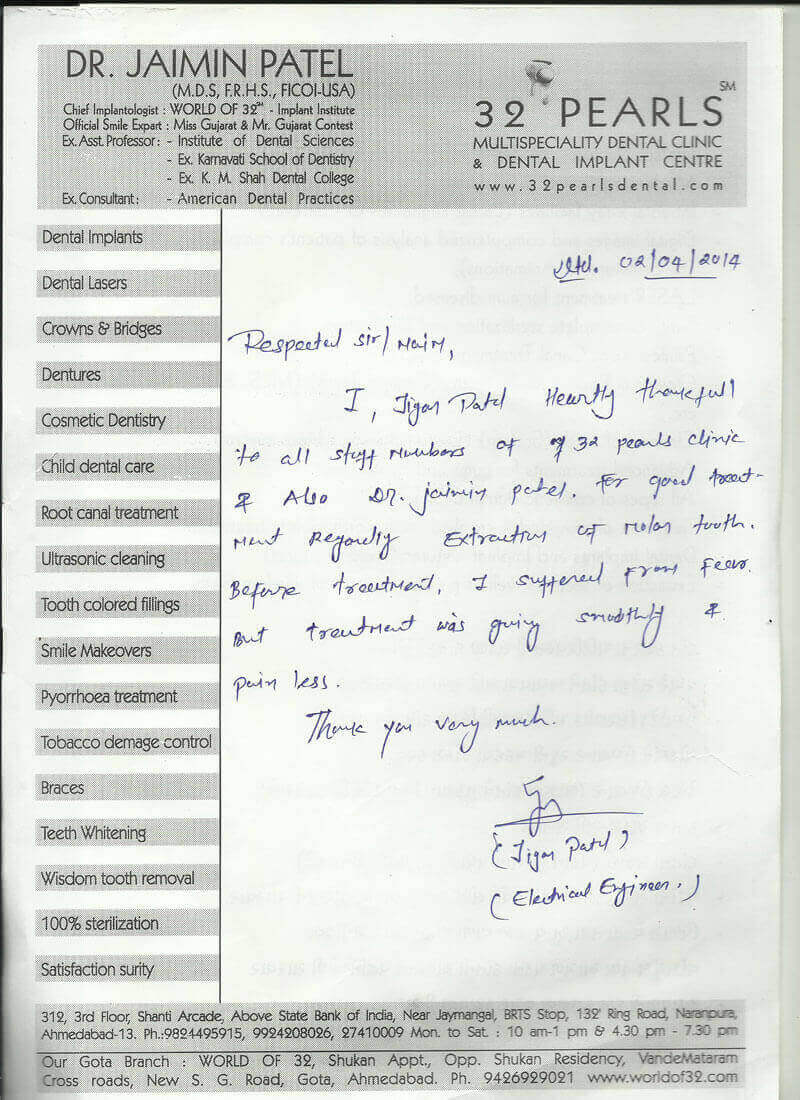 DR. JAIMIN PATEL
(M.D.S, F.R.H.S., FICOI-USA)
Chief Implantologist : WORLD OF 32™ - Implant Institute
Official Smile Expart : Miss Gujarat & Mr. Gujarat Contest
Ex. Asst. Professor : - Institute of Dental Sciences
- Ex. Karnavati School of Dentistry
- Ex. K. M. Shah Dental College
Ex. Consultant : - American Dental Practices
32 PEARLS SM
MULTISPECIALITY DENTAL CLINIC
& DENTAL IMPLANT CENTRE
www.32pearlsdental.com
Dental Implants
Dental Lasers
Crowns & Bridges
Dentures
Cosmetic Dentistry
Child dental care
Root canal treatment
Ultrasonic cleaning
Tooth colored fillings
Smile Makeovers
Pyorrhoea treatment
Tobacco demage control
Braces
Teeth Whitening
Wisdom tooth removal
100% sterilization
Satisfaction surity
02/04/2014
Respected sir/ Maim,
I, Jigar Patel Heartly thankfull
to all staff Numbers of of 32 pearls clinic
& Also Dr. jaimin patel. For good treat-
ment Regardly Extraction of Molar tooth.
Before treatment, I suffered from Fear.
But treatment was going smoothly &
pain less.
Thank you very much.
( Jigar Patel )
( Electrical Engineer. )
312, 3rd Floor, Shanti Arcade, Above State Bank of India, Near Jaymangal, BRTS Stop, 132' Ring Road, Naranpura,
Ahmedabad-13. Ph.:9824495915, 9924208026, 27410009 Mon. to Sat. : 10 am-1 pm & 4.30 pm - 7.30 pm
Our Gota Branch : WORLD OF 32, Shukan Appt., Opp. Shukan Residency, VandeMataram
Cross roads, New S. G. Road, Gota, Ahmedabad. Ph. 9426929021 www.worldof32.com